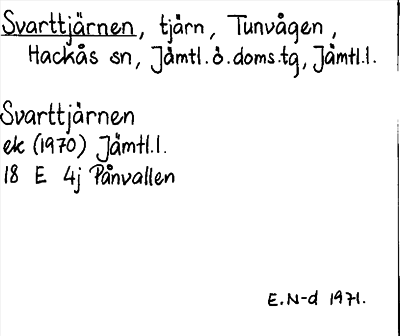 Svarttjärnen, tjärn, Tunvågen,
Hackås sn, Jämtl.ö.doms.tg, Jämtl.l.
Svarttjärnen
ek (1970) Jämtl.l.
18 E 4j Pånvallen
E.N-d 1971.